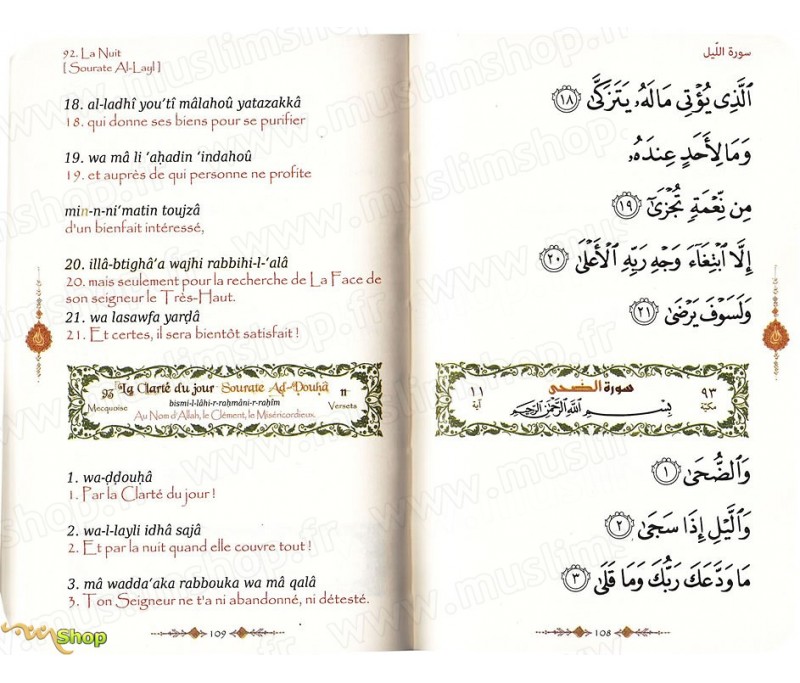 92. La Nuit
[ Sourate Al-Layl ]
18. al-ladhî you'tî mâlahoû yatazakkâ
18. qui donne ses biens pour se purifier
19. wa mâ li ‘aḥadin ‘indahoû
19. et auprès de qui personne ne profite
min-n-ni‘matin toujzâ
d'un bienfait intéressé,
20. illâ-btighâ'a wajhi rabbihi-l-‘alâ
20. mais seulement pour la recherche de La Face de
son seigneur le Très-Haut.
21. wa lasawfa yarḍâ
21. Et certes, il sera bientôt satisfait !
93 La Clarté du jour Sourate Aḍ-Ḍouḥâ 11
Mecquoise bismi-l-lâhi-r-raḥmâni-r-raḥîm Versets
Au Nom d'Allah, le Clément, le Miséricordieux
1. wa-ḍḍouḥâ
1. Par la Clarté du jour !
2. wa-l-layli idhâ sajâ
2. Et par la nuit quand elle couvre tout !
3. mâ wadda‘aka rabbouka wa mâ qalâ
3. Ton Seigneur ne t'a ni abandonné, ni détesté.
109
سورة اللّيل
ٱلَّذِى يُؤْتِى مَالَهُۥ يَتَزَكَّىٰ ١٨
وَمَا لِأَحَدٍ عِندَهُۥ
مِن نِّعْمَةٍ تُجْزَىٰٓ ١٩
إِلَّا ٱبْتِغَآءَ وَجْهِ رَبِّهِ ٱلْأَعْلَىٰ ٢٠
وَلَسَوْفَ يَرْضَىٰ ٢١
٩٣ سورة الضّحى ١١
مكيّة بِسْمِ ٱللَّهِ ٱلرَّحْمَٰنِ ٱلرَّحِيمِ آية
وَٱلضُّحَىٰ ١
وَٱلَّيْلِ إِذَا سَجَىٰ ٢
مَا وَدَّعَكَ رَبُّكَ وَمَا قَلَىٰ ٣
108
www.muslimshop.fr
Shop